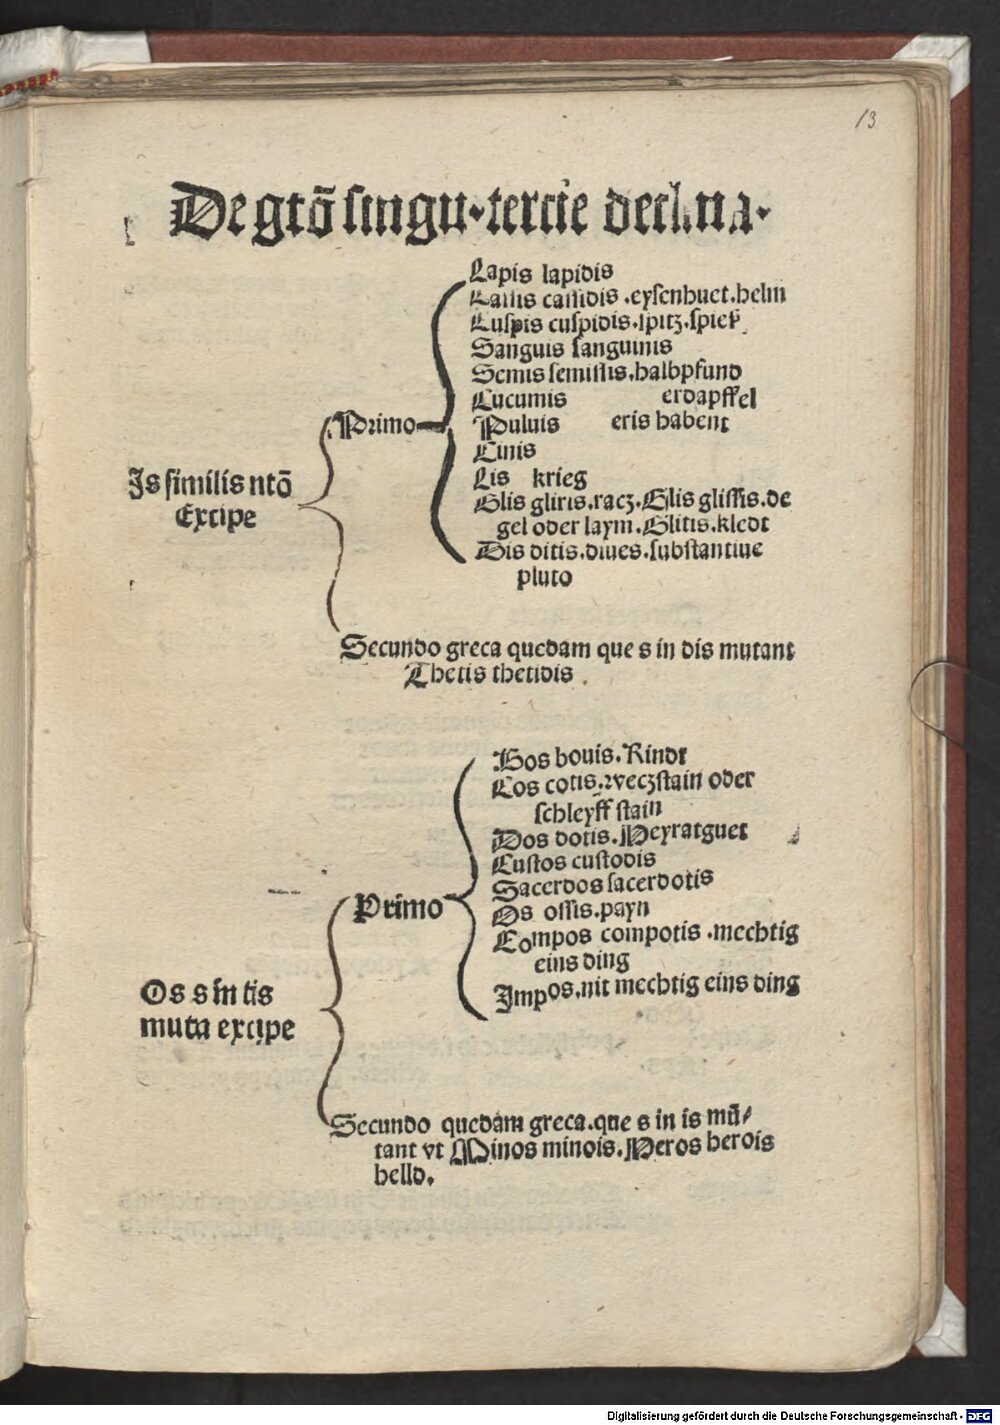 13
De gtō singu. tercie declina.
Lapis lapidis
Cassis cassidis .eysenhuet.helm
Cuspis cuspidis.spitz.spieß
Sanguis sanguinis
Semis semissis.halbpfund
Cucumis erdapffel
Puluis eris habent
Cinis
Lis krieg
Primo
Glis gliris.racz.Glis glissis.de
gel oder laym.Glitis.kledt
Dis ditis.diues.substantiue
pluto
Is similis ntō
Excipe
Secundo greca quedam que s in dis mutant
Thetis thetidis .
Bos bouis.Rindt
Cos cotis.weczstain oder
schleyff stain
Dos dotis.Heyratguet
Custos custodis
Sacerdos sacerdotis
Primo
Os ossis.payn
Compos compotis .mechtig
eins ding
Impos.nit mechtig eins ding
Os s in tis
muta excipe
Secundo quedam greca.que s in is mū/
tant vt Minos minois.Heros herois
hello.
Digitalisierung gefördert durch die Deutsche Forschungsgemeinschaft - DFG